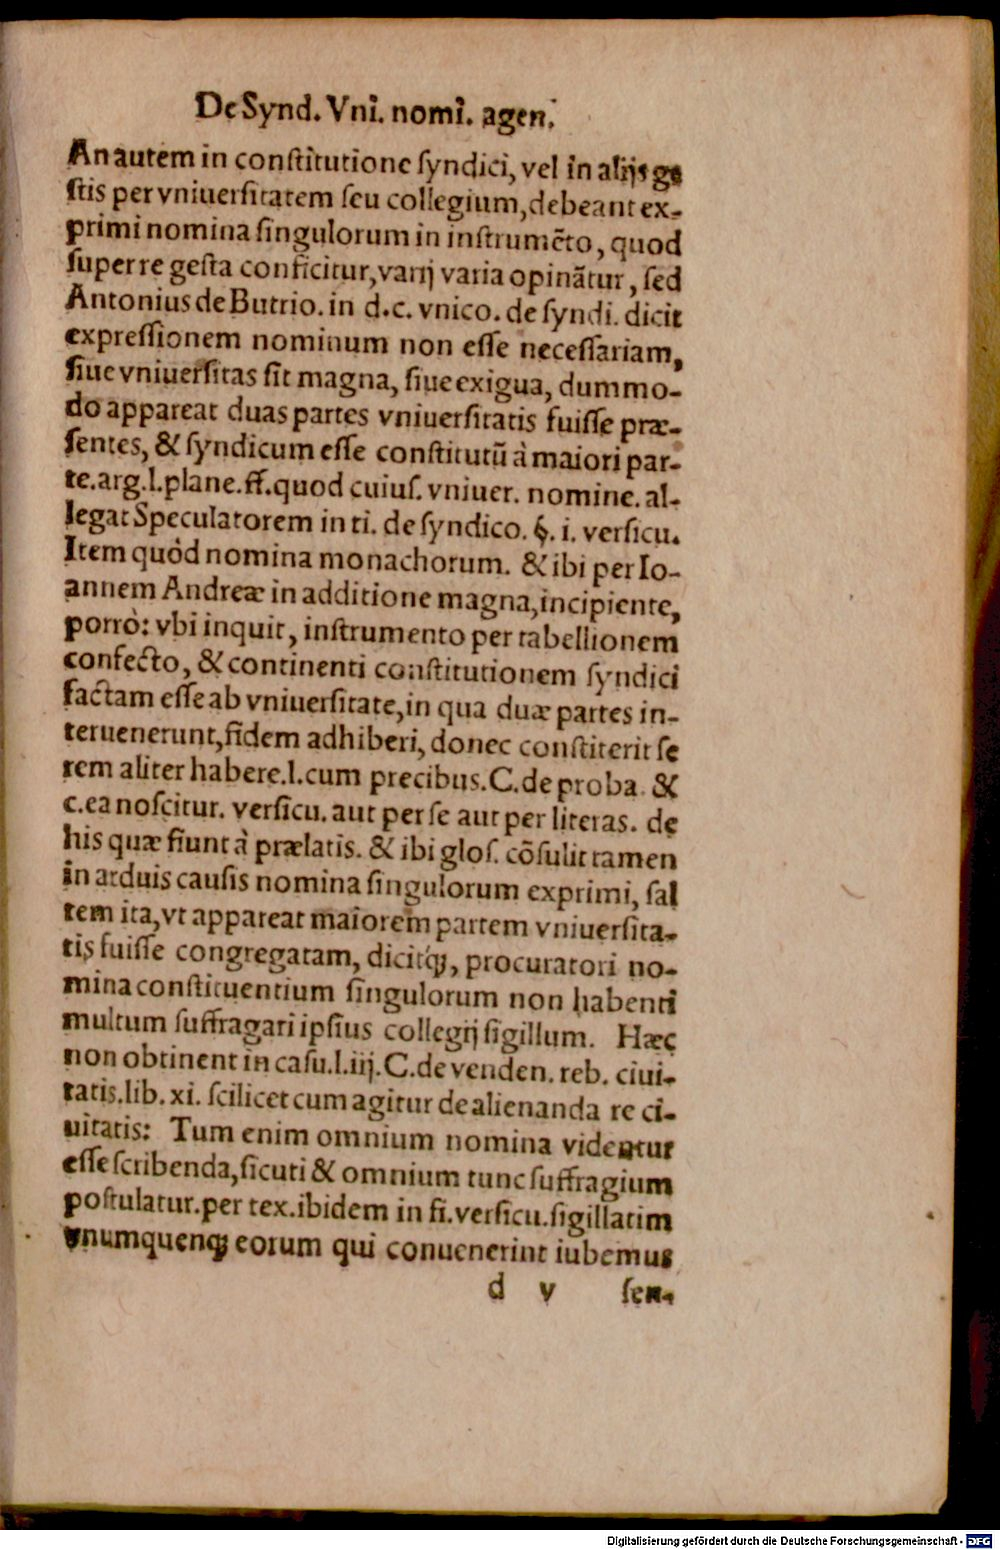 De Synd. Vni. nomi. agen.
An autem in constitutione syndici, vel in alijs ge
stis per vniuersitatem seu collegium, debeant ex-
primi nomina singulorum in instrumēto, quod
super re gesta conficitur, varij varia opinātur, sed
Antonius de Butrio. in d.c. vnico. de syndi. dicit
expressionem nominum non esse necessariam,
siue vniuersitas sit magna, siue exigua, dummo-
do appareat duas partes vniuersitatis fuisse præ-
sentes, & syndicum esse constitutū à maiori par-
te. arg. l. plane. ff. quod cuius. vniuer. nomine. al-
legat Speculatorem in ti. de syndico. §. i. versicu.
Item quòd nomina monachorum. & ibi per Io-
annem Andreæ in additione magna, incipiente,
porrò: vbi inquit, instrumento per tabellionem
confecto, & continenti constitutionem syndici
factam esse ab vniuersitate, in qua duæ partes in-
teruenerunt, fidem adhiberi, donec constiterit se
rem aliter habere. l. cum precibus. C. de proba. &
c. ea noscitur. versicu. aut per se aut per literas. de
his quæ fiunt à prælatis. & ibi glos. cōsulit tamen
in arduis causis nomina singulorum exprimi, sal
tem ita, vt appareat maiorem partem vniuersita-
tis fuisse congregatam, dicitq́;, procuratori no-
mina constituentium singulorum non habenti
multum suffragari ipsius collegij sigillum. Hæc
non obtinent in casu. l. iij. C. de venden. reb. ciui-
tatis. lib. xi. scilicet cum agitur de alienanda re ci-
uitatis: Tum enim omnium nomina videntur
esse scribenda, sicuti & omnium tunc suffragium
postulatur. per tex. ibidem in fi. versicu. sigillatim
vnumquenq; eorum qui conuenerint iubemus
d v sen-
Digitalisierung gefördert durch die Deutsche Forschungsgemeinschaft - DFG